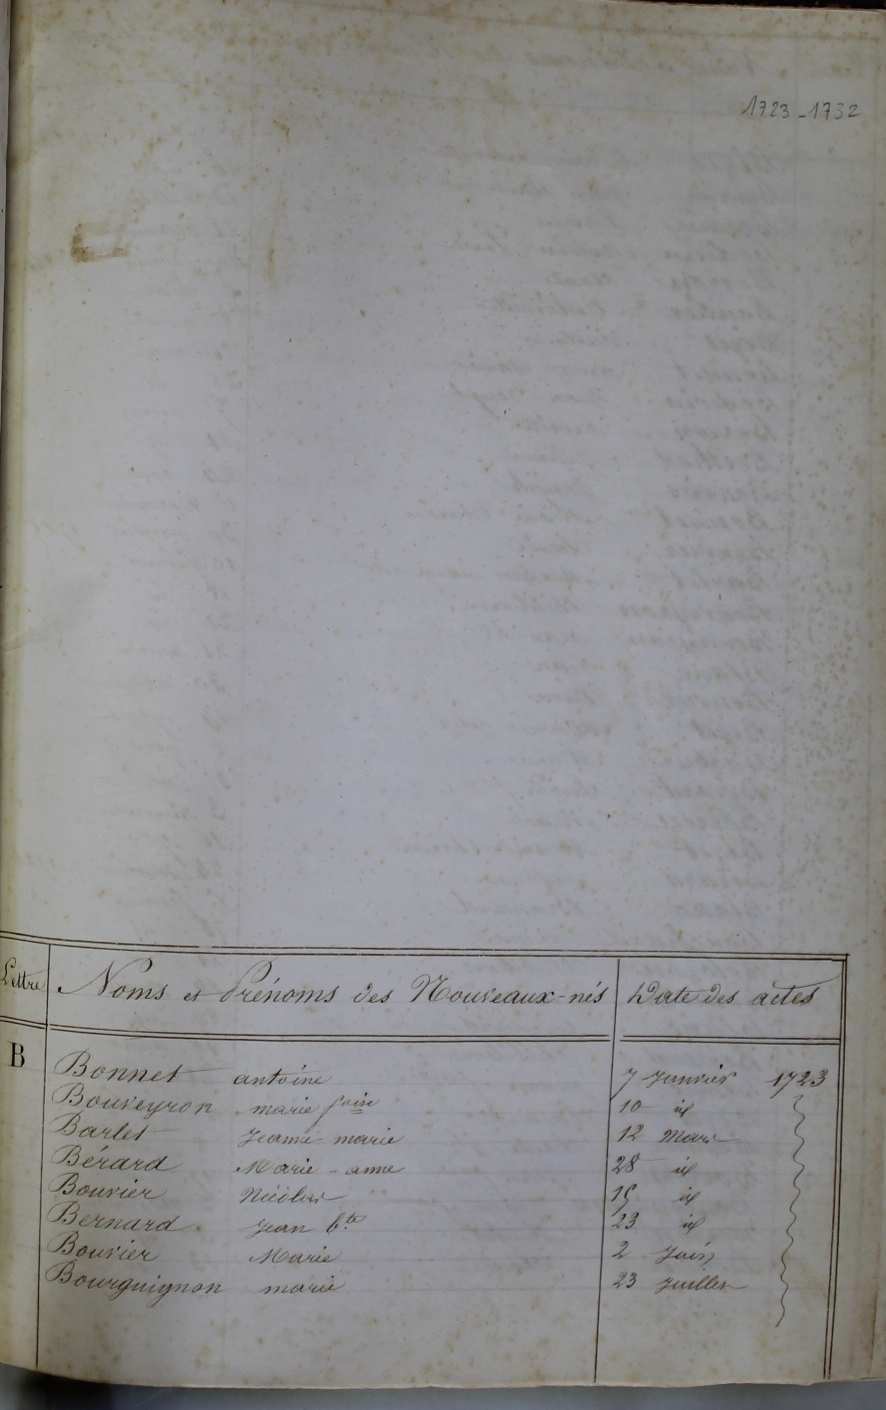 1723-1732
Lettre Noms et Prénoms des Nouveaux-nés Date des actes
B
Bonnet antoine 7 Janvier 1723
Bouveyron marie foise 10 id
Barlet Jeanne marie 12 Mars
Bérard Marie-anne 28 id
Bouvier Nicolas 15 id
Bernard Jean bte 23 id
Bouvier Marie 2 Juin
Bourguignon marie 23 Juillet